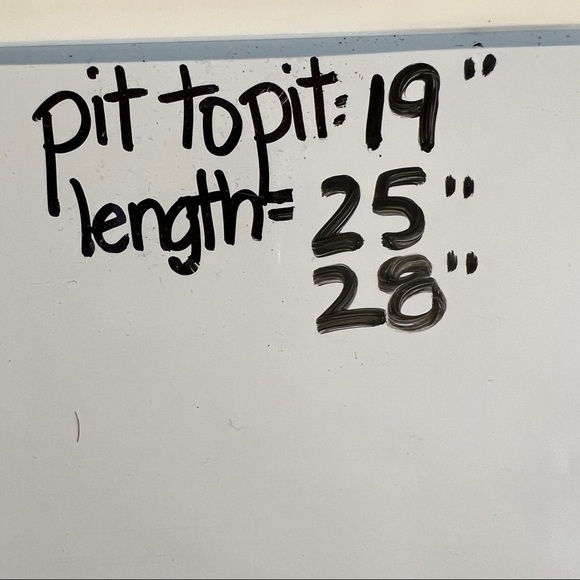 pit to pit: 19"
length= 25"
28"